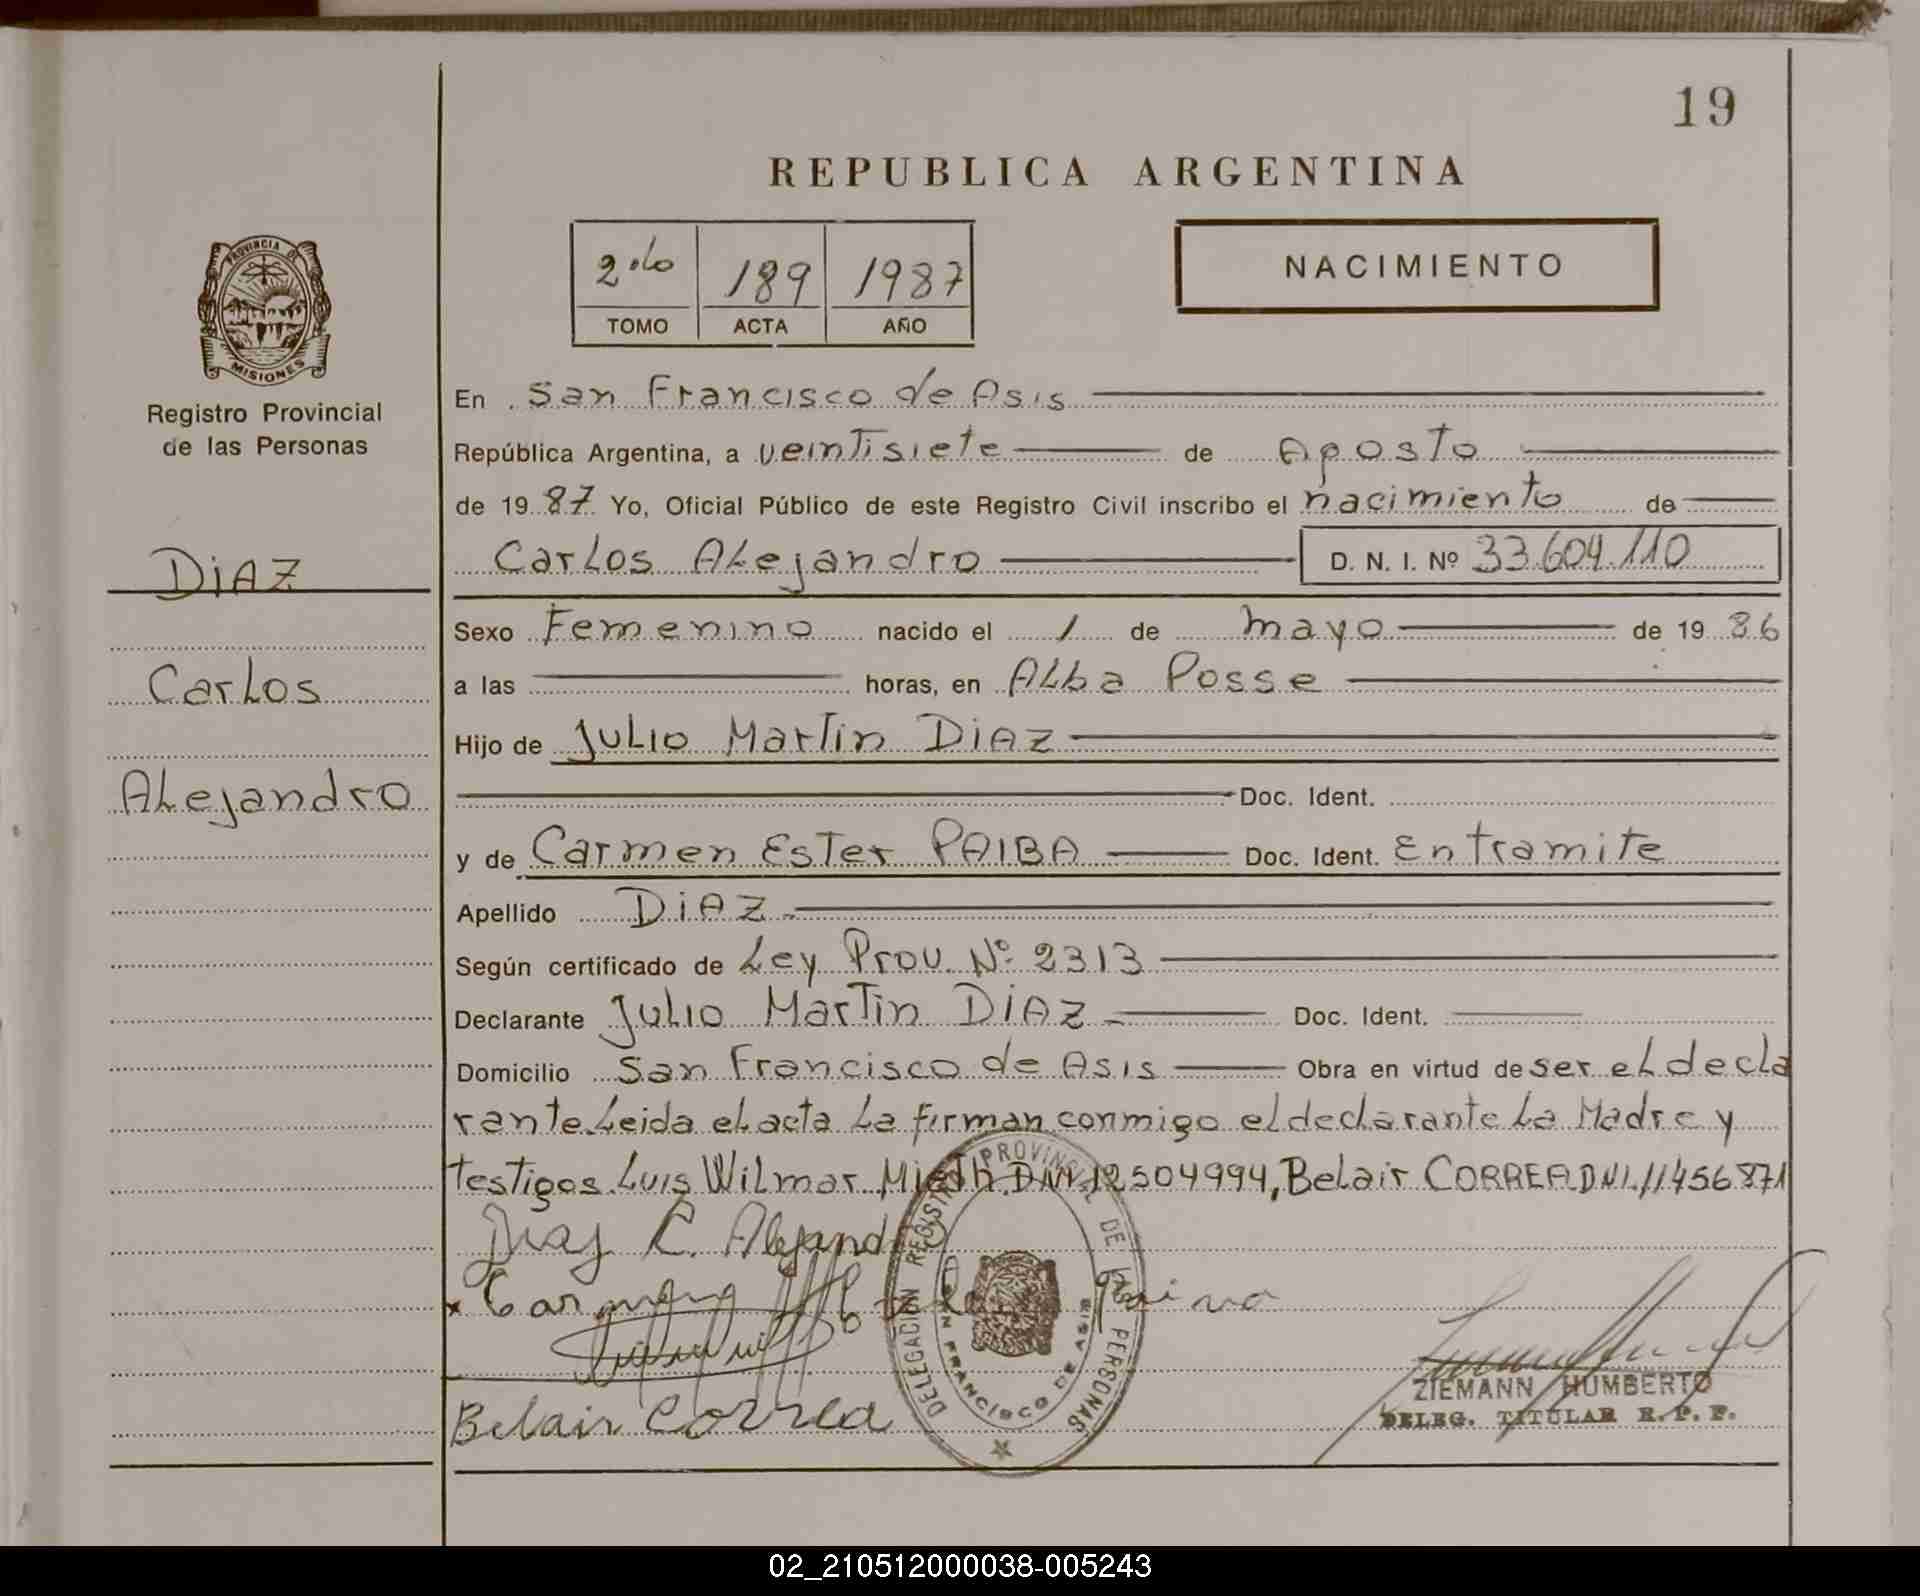 19
REPUBLICA ARGENTINA
2do 189 1987
TOMO ACTA AÑO
NACIMIENTO
PROVINCIA DE
MISIONES
Registro Provincial
de las Personas
DiAZ
Carlos
Alejandro
En San Francisco de Asis
República Argentina, a veintisiete de Agosto
de 19 87 Yo, Oficial Público de este Registro Civil inscribo el nacimiento de
Carlos Alejandro D. N. I. Nº 33.604.110
Sexo Femenino nacido el 1 de mayo de 19 86
a las horas, en Alba Posse
Hijo de Julio Martin DiAZ
Doc. Ident.
y de Carmen Ester PAIBA Doc. Ident. Entramite
Apellido DiAZ
Según certificado de Ley Prov. Nº 2313
Declarante Julio Martin DiAZ Doc. Ident.
Domicilio San Francisco de Asis Obra en virtud de ser el decla
rante. Leida el acta la firman conmigo el declarante la Madre y
testigos. Luis Wilmar Mieth. DNI 12504994, Belair CORREA DNI. 11456871
Diaz C. Alejandro
x Carmen Paiva
Belair Correa
DELEGACION REGISTRO PROVINCIAL DE PERSONAS
SAN FRANCISCO DE ASIS
ZIEMANN HUMBERTO
DELEG. TITULAR R. P. P.
02_210512000038-005243